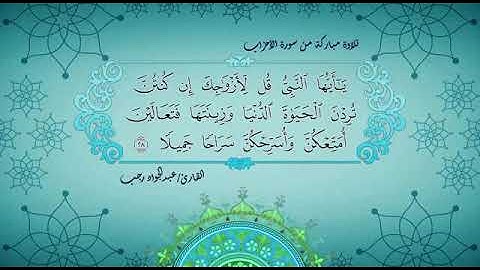 تلاوة مباركة من سورة الأحزاب
يَـٰٓأَيُّهَا ٱلنَّبِىُّ قُل لِّأَزْوَٰجِكَ إِن كُنتُنَّ
تُرِدْنَ ٱلْحَيَوٰةَ ٱلدُّنْيَا وَزِينَتَهَا فَتَعَالَيْنَ
أُمَتِّعْكُنَّ وَأُسَرِّحْكُنَّ سَرَاحًا جَمِيلًا ٢٨
القارئ/عبدالجواد رجب